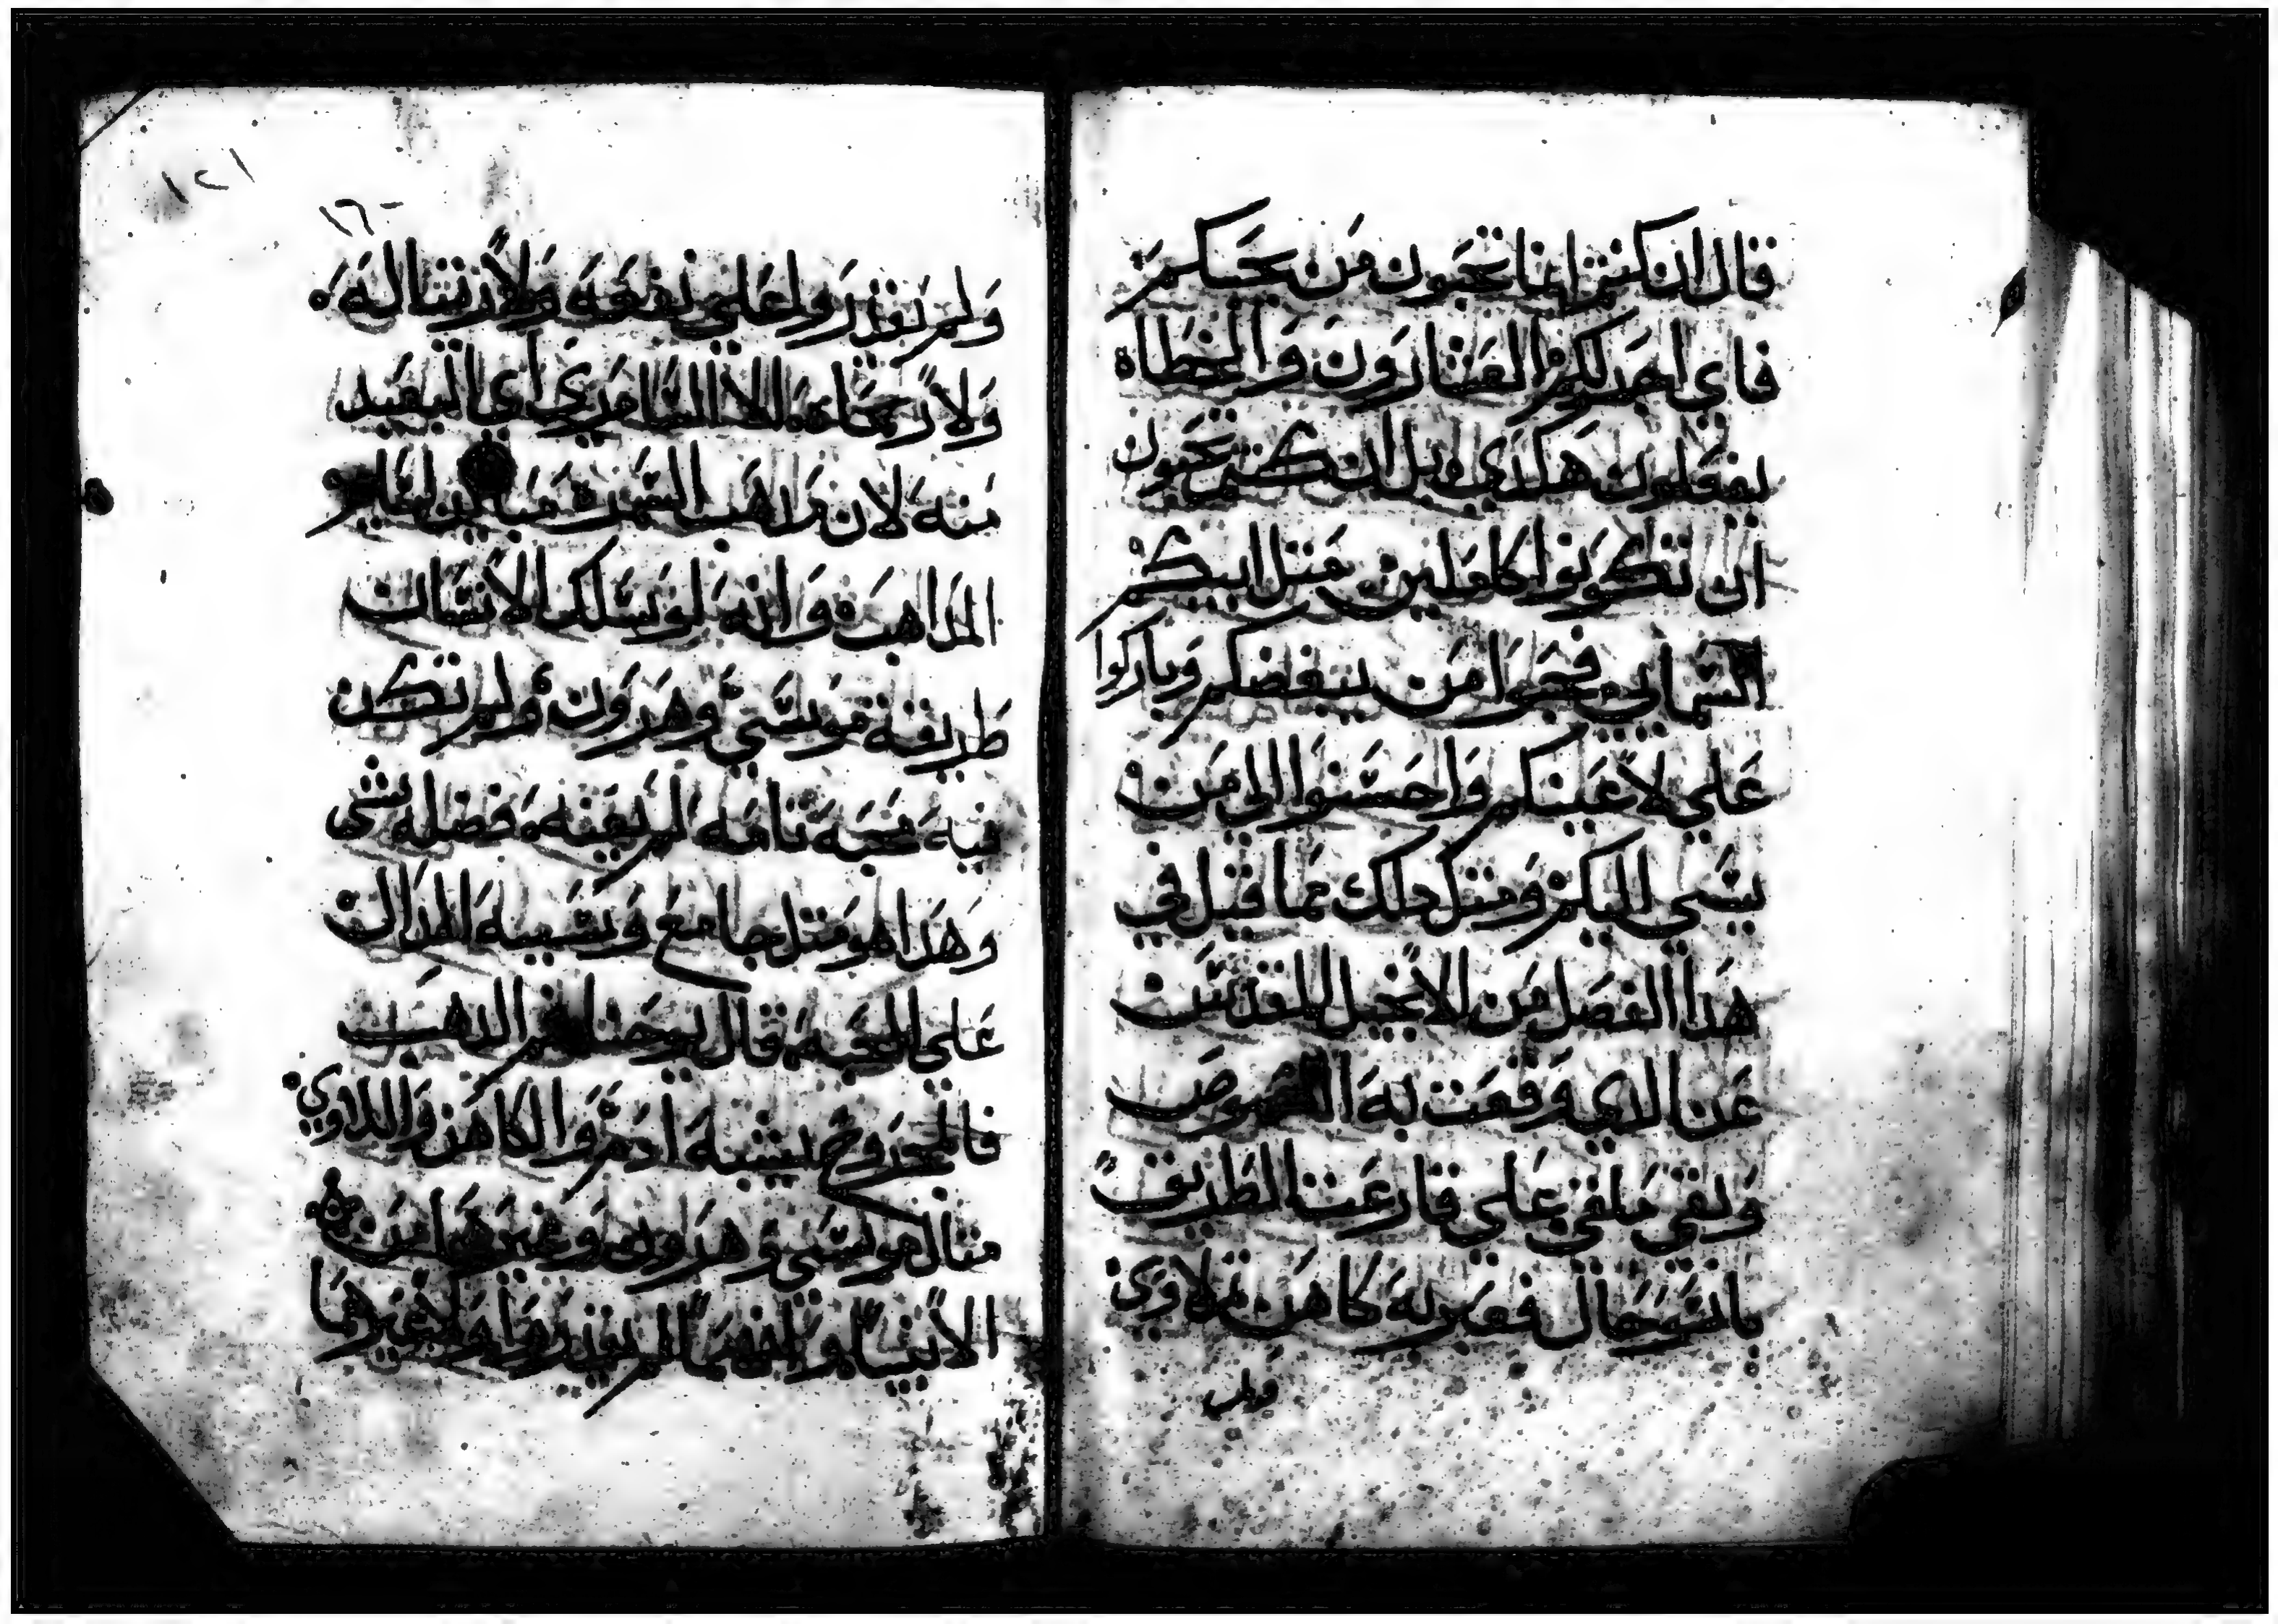 قال ان كنتم انما تحبون من يحبكم
فاي اجر لكم العشارون والخطاه
يفعلون هكدي بل ان كنتم تحبون
ان تكونوا كاملين مثل ابيكم
السماىي فحبوا من يبغضكم وباركوا
علي لاعينكم واحسنوا الي من
يسي اليكم ومثل دلك مما قيل في
هدا الفصل من الانجيل المقدس
عن الدي وقعت به اللصوص
وبقي ملقي علي قارعت الطريق
باسو حال فعبر به كاهن تم لاوي
ولم
١٢١
١٦٠
ولم يقدروا علي نفعه ولا رتتا له
ولا رحماه الا السامري اي البعيد
منه لان مداهب السمره مباين لهاولو
المداهب وانه لو يسلك الانسان
طريقة موسي وهرون ولم تكن
فيه محبه تامه لم يعينه فضله بشي
وهدا هو مثل جامع وتشبيه المدان
علي المحبه قال يوحنا فم الدهب
فالمجروح يشبه ادم والكاهن واللاوي
مثال موسي وهرون وغيرهما من
الانبيا وانهما لم يقدروا ولا غيرهما